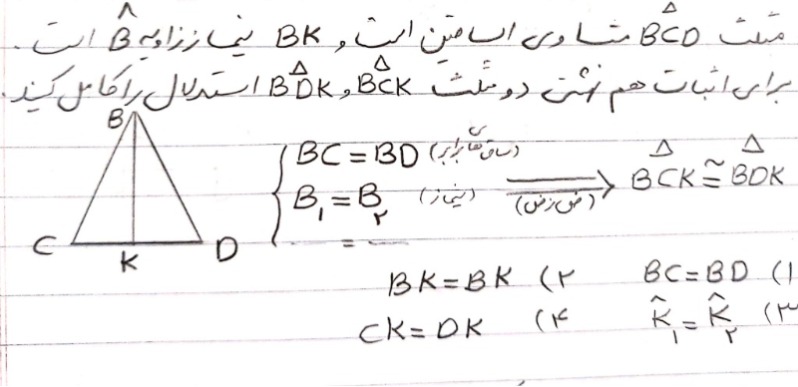 مثلث BCD متساوی الساقین است و BK نیمساز زاویه B است.
برای اثبات هم نهشتی دو مثلث BCK و BDK استدلال را کامل کنید.
B
C
K
D
BC = BD (ساق های برابر)
B₁ = B₂ (نیمساز)
=
(ض ز ض)
BCK ≅ BDK
۱) BC = BD
۲) BK = BK
۳) K̂₁ = K̂₂
۴) CK = DK